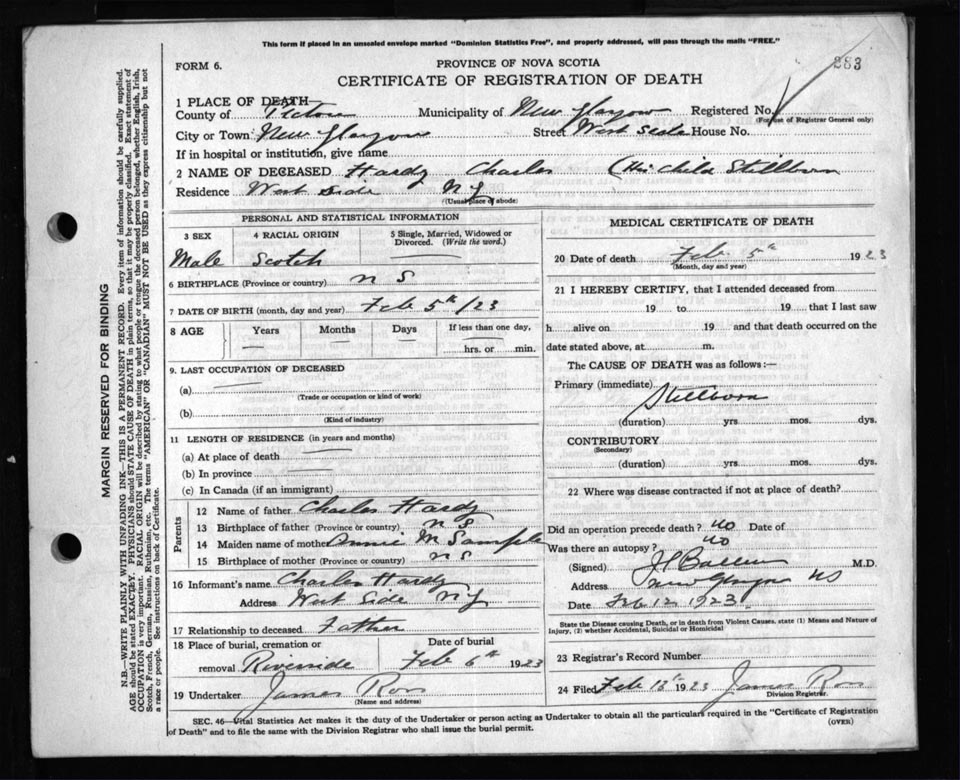 This form if placed in an unsealed envelope marked "Dominion Statistics Free", and properly addressed, will pass through the mails "FREE."
FORM 6.
PROVINCE OF NOVA SCOTIA
883
CERTIFICATE OF REGISTRATION OF DEATH
1 PLACE OF DEATH—
County of Pictou Municipality of New Glasgow Registered No.
(For use of Registrar General only)
City or Town New Glasgow Street West Side House No.
If in hospital or institution, give name
2 NAME OF DECEASED Hardy Charles (His child Stillborn
Residence West Side N G
(Usual place of abode)
PERSONAL AND STATISTICAL INFORMATION
3 SEX 4 RACIAL ORIGIN 5 Single, Married, Widowed or Divorced. (Write the word.)
Male Scotch
6 BIRTHPLACE (Province or country) N S
7 DATE OF BIRTH (month, day and year) Feb 5th /23
8 AGE Years Months Days If less than one day,
hrs. or min.
9. LAST OCCUPATION OF DECEASED
(a)
(Trade or occupation or kind of work)
(b)
(Kind of industry)
11 LENGTH OF RESIDENCE (in years and months)
(a) At place of death
(b) In province
(c) In Canada (if an immigrant)
Parents
12 Name of father Charles Hardy
13 Birthplace of father (Province or country) N S
14 Maiden name of mother Annie M Sample
15 Birthplace of mother (Province or country) N S
16 Informant's name Charles Hardy
Address West Side N G
17 Relationship to deceased Father
18 Place of burial, cremation or Date of burial
removal Riverside Feb 6th 1923
19 Undertaker James Ross
(Name and address)
MEDICAL CERTIFICATE OF DEATH
20 Date of death Feb 5th 1923
(Month, day and year)
21 I HEREBY CERTIFY, that I attended deceased from
19 to 19 that I last saw
h alive on 19 and that death occurred on the
date stated above, at m.
The CAUSE OF DEATH was as follows:—
Primary (immediate)
Stillborn
(duration) yrs mos. dys.
CONTRIBUTORY
(Secondary)
(duration) yrs mos. dys.
22 Where was disease contracted if not at place of death?
Did an operation precede death? no Date of
Was there an autopsy? no
(Signed) M.D.
Address New Glasgow NS
Date Feb 12 1923.
State the Disease causing Death, or in death from Violent Causes, state (1) Means and Nature of
Injury, (2) whether Accidental, Suicidal or Homicidal
23 Registrar's Record Number
24 Filed Feb 13th 1923 James Ross
Division Registrar.
SEC. 46—Vital Statistics Act makes it the duty of the Undertaker or person acting as Undertaker to obtain all the particulars required in the "Certificate of Registration
of Death" and to file the same with the Division Registrar who shall issue the burial permit.
(OVER)
MARGIN RESERVED FOR BINDING
N.B.—WRITE PLAINLY WITH UNFADING INK—THIS IS A PERMANENT RECORD. Every item of information should be carefully supplied.
AGE should be stated EXACTLY. PHYSICIANS should STATE CAUSE OF DEATH in plain terms, so that it may be properly classified. Exact statement of
OCCUPATION is very important. RACIAL ORIGIN will be described by stating to what people or tongue the deceased person belonged, whether English, Irish,
Scotch, French, German, Russian, Ruthenian, etc. The terms "AMERICAN" OR "CANADIAN" MUST NOT BE USED as they express citizenship but not
a race or people. See instructions on back of Certificate.